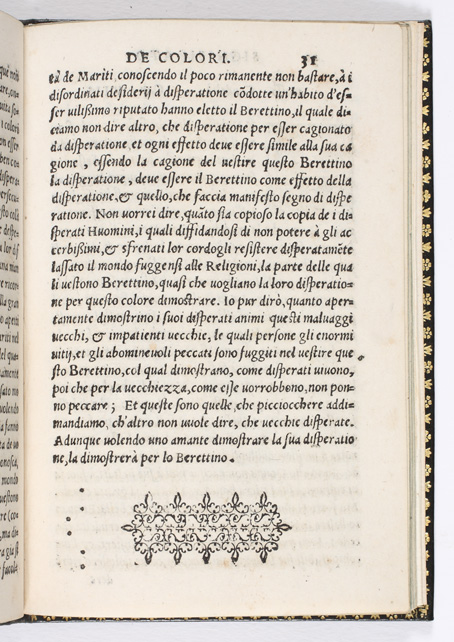 DE COLORI. 31
tà de Mariti conoscendo il poco rimanente non bastare, à i
disordinati desiderij à disperatione cõdotte un'habito d'es-
ser uilißimo riputato hanno eletto il Berettino, il quale di-
ciamo non dire altro, che disperatione per esser cagionato
da disperatione, et ogni effetto deve essere simile alla sua ca
gione, essendo la cagione del uestire questo Berettino
la disperatione, deve essere il Berettino come effetto della
disperatione, & quello, che faccia manifesto segno di dispe
ratione. Non uorrei dire, quãto sia copiosa la copia de i di-
sperati Huomini, i quali diffidandosi di non potere à gli ac
cerbißimi, & sfrenati lor cordogli resistere disperatamẽte
lassato il mondo fuggensi alle Religioni, la parte delle qua
li uestono Berettino, quasi che uogliano la loro disperatio-
ne per questo colore dimostrare. Io pur dirò, quanto aper-
tamente dimostrino i suoi disperati animi questi maluaggi
uecchi, & impatienti uecchie, le quali persone gli enormi
uitij, et gli abomineuoli peccati sono fuggiti nel uestire que
sto Berettino, col qual dimostrano, come disperati uiuono,
poi che per la uecchiezza, come esse vorrobbono, non pon-
no peccare; Et queste sono quelle, che picciocchere addi-
mandiamo, ch'altro non uuole dire, che uecchie disperate.
Adunque uolendo uno amante dimostrare la sua disperatio
ne, la dimostrerà per lo Berettino.